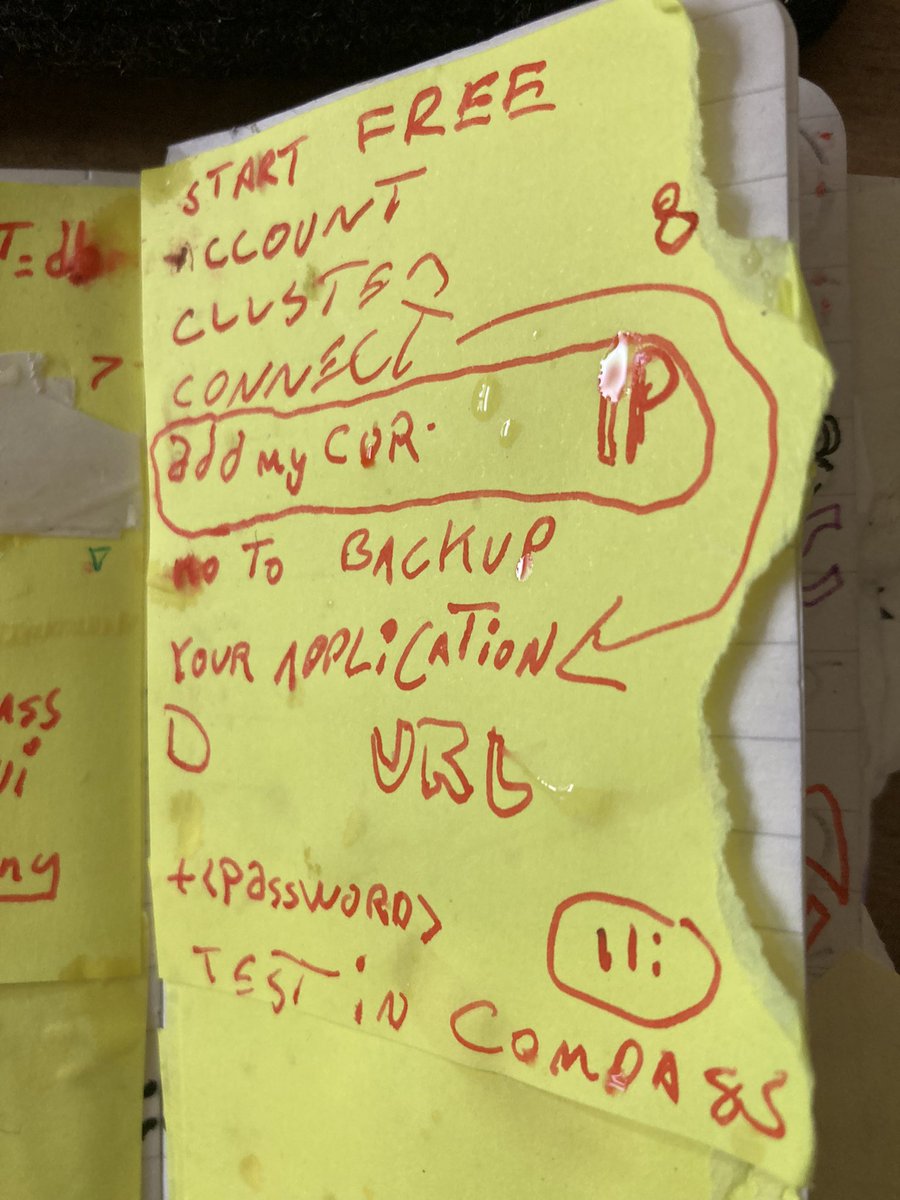 START FREE
ACCOUNT
8
CLUSTER
CONNECT
add my CUR. IP
NO TO BACKUP
YOUR APPLICATION
URL
+<PassWORD>
TEST iN COMPASS
T=db
>
ASS
ui
ny